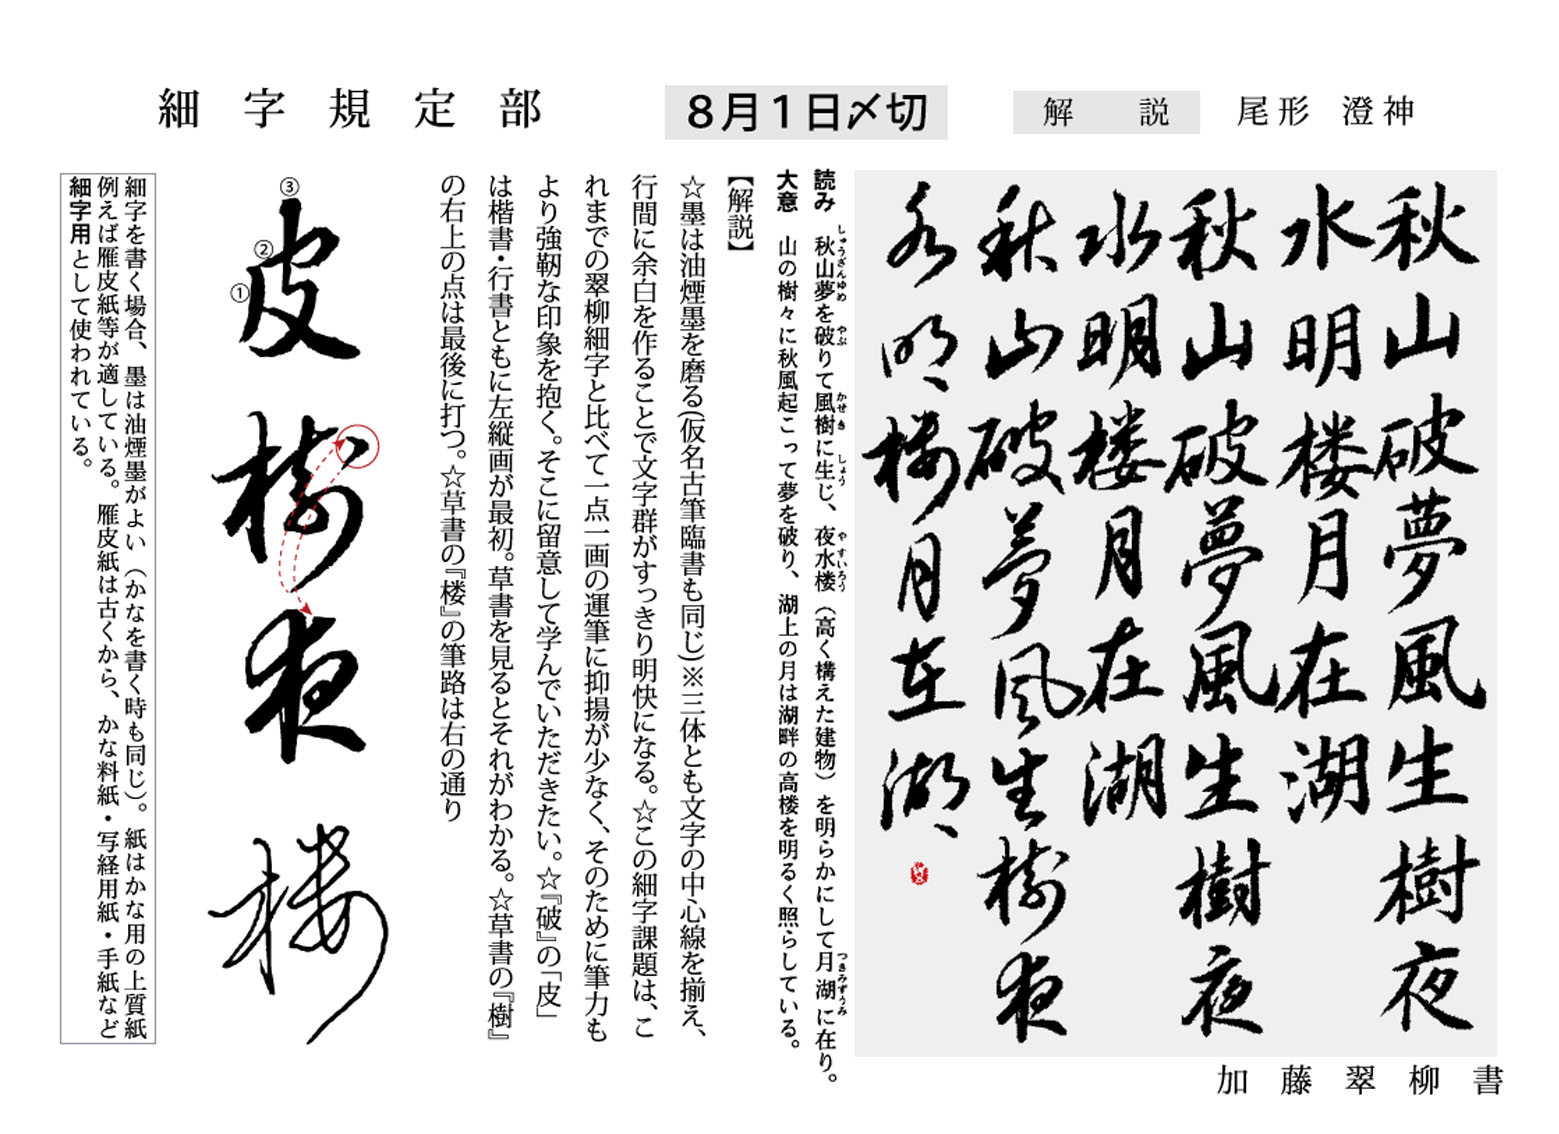 細字規定部
8月1日〆切
解説
尾形 澄神
秋山破夢風生樹夜
水明楼月在湖
秋山破夢風生樹夜
水明楼月在湖
秋山破夢風生樹夜
水明楼月在湖
加藤翠柳書
読み 秋山夢を破りて風樹に生じ、夜水楼(高く構えた建物)を明らかにして月湖に在り。
しゅうざんゆめ やぶ かせき しょう やすいろう つきみずうみ
大意 山の樹々に秋風起こって夢を破り、湖上の月は湖畔の高楼を明るく照らしている。
【解説】
☆墨は油煙墨を磨る(仮名古筆臨書も同じ)※三体とも文字の中心線を揃え、
行間に余白を作ることで文字群がすっきり明快になる。☆この細字課題は、こ
れまでの翠柳細字と比べて一点一画の運筆に抑揚が少なく、そのために筆力も
より強靭な印象を抱く。そこに留意して学んでいただきたい。☆『破』の「皮」
は楷書・行書ともに左縦画が最初。草書を見るとそれがわかる。☆草書の『樹』
の右上の点は最後に打つ。☆草書の『楼』の筆路は右の通り
③
②
①
皮
樹
夜
楼
細字を書く場合、墨は油煙墨がよい(かなを書く時も同じ)。紙はかな用の上質紙
例えば雁皮紙等が適している。雁皮紙は古くから、かな料紙・写経用紙・手紙など
細字用として使われている。